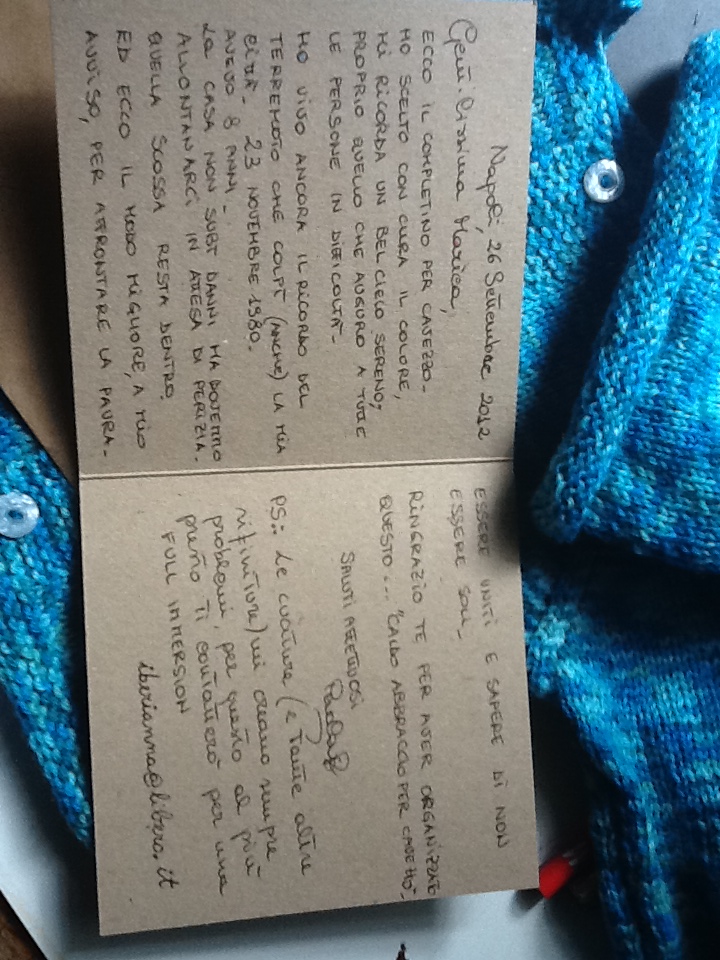 Napoli, 26 Settembre 2012
Gent.lissima Marica,
ECCO IL COMPLETINO PER CAVEZZO-
HO SCELTO CON CURA IL COLORE,
MI RICORDA UN BEL CIELO SERENO;
PROPRIO QUELLO CHE AUGURO A TUTTE
LE PERSONE IN DIFFICOLTÀ-
HO VIVO ANCORA IL RICORDO DEL
TERREMOTO CHE COLPÌ (ANCHE) LA MIA
CITTÀ- 23 NOVEMBRE 1980.
AVEVO 8 ANNI-
LA CASA NON SUBÌ DANNI MA DOVEMMO
ALLONTANARCI IN ATTESA DI PERIZIA-
QUELLA SCOSSA RESTA DENTRO,
ED ECCO IL MODO MIGLIORE, A MIO
AVVISO, PER AFFRONTARE LA PAURA-
ESSERE UNITI E SAPERE DI NON
ESSERE SOLI-
RINGRAZIO TE PER AVER ORGANIZZATO
QUESTO.... "CALDO ABBRACCIO PER CAVEZZO"-
SALUTI AFFETTUOSI
PS.: Le cuciture (e tante altre
rifiniture) mi creano sempre
problemi, per questo al più
presto ti contatterò per una
FULL IMMERSION
iberianna@libero.it